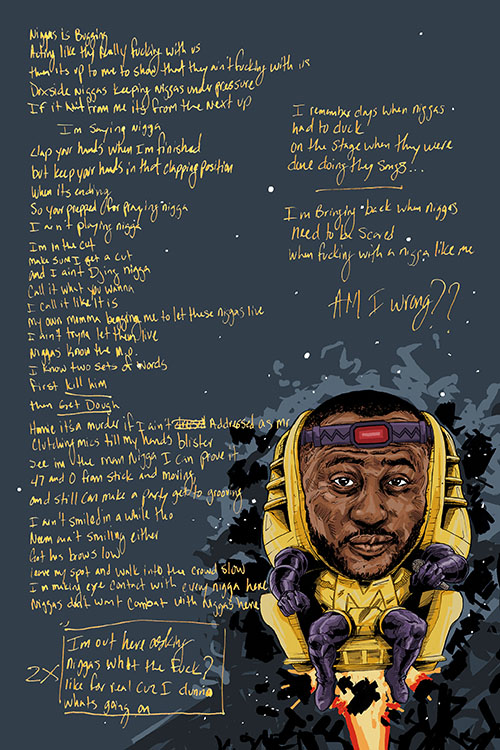 Niggas is Bugging
Acting like they Really fucking with us
then its up to me to show that they ain't fucking with us
Doxside Niggas keeping niggas under pressure
If it Not from me its from the Next up
I'm Saying Nigga
Clap your hands when I'm finished
but keep your hands in that clapping position
when its ending
So your prepped for praying nigga
I ain't playing nigga
Im in the cut
make sure I get a cut
and I aint Djing nigga
Call it what you wanna
I call it like it is
My own momma begging me to let these niggas live
I ain't tryna let them live
Niggas know the M.O.
I know two sets of words
First kill him
then Get Dough
Homie it's a murder if I ain't Addressed as mr.
Clutching mics till my hands blister
See im the man Nigga I can prove it
47 and 0 from stick and moving
and still can make a party get to grooving
I ain't smiled in a while tho
Neem ain't smiling either
Got his brows low
leave my spot and walk into the crowd slow
I'm making eye contact with every nigga here
Niggas don't want combat with Niggas here
2X
I'm out here asking
Niggas what the Fuck?
like for real cuz I dunno
whats going on
I remember days when niggas
had to duck
on the stage when they were
done doing they songs...
I'm Bringing back when niggas
need to be scared
when fucking with a nigga like me
AM I wrong??